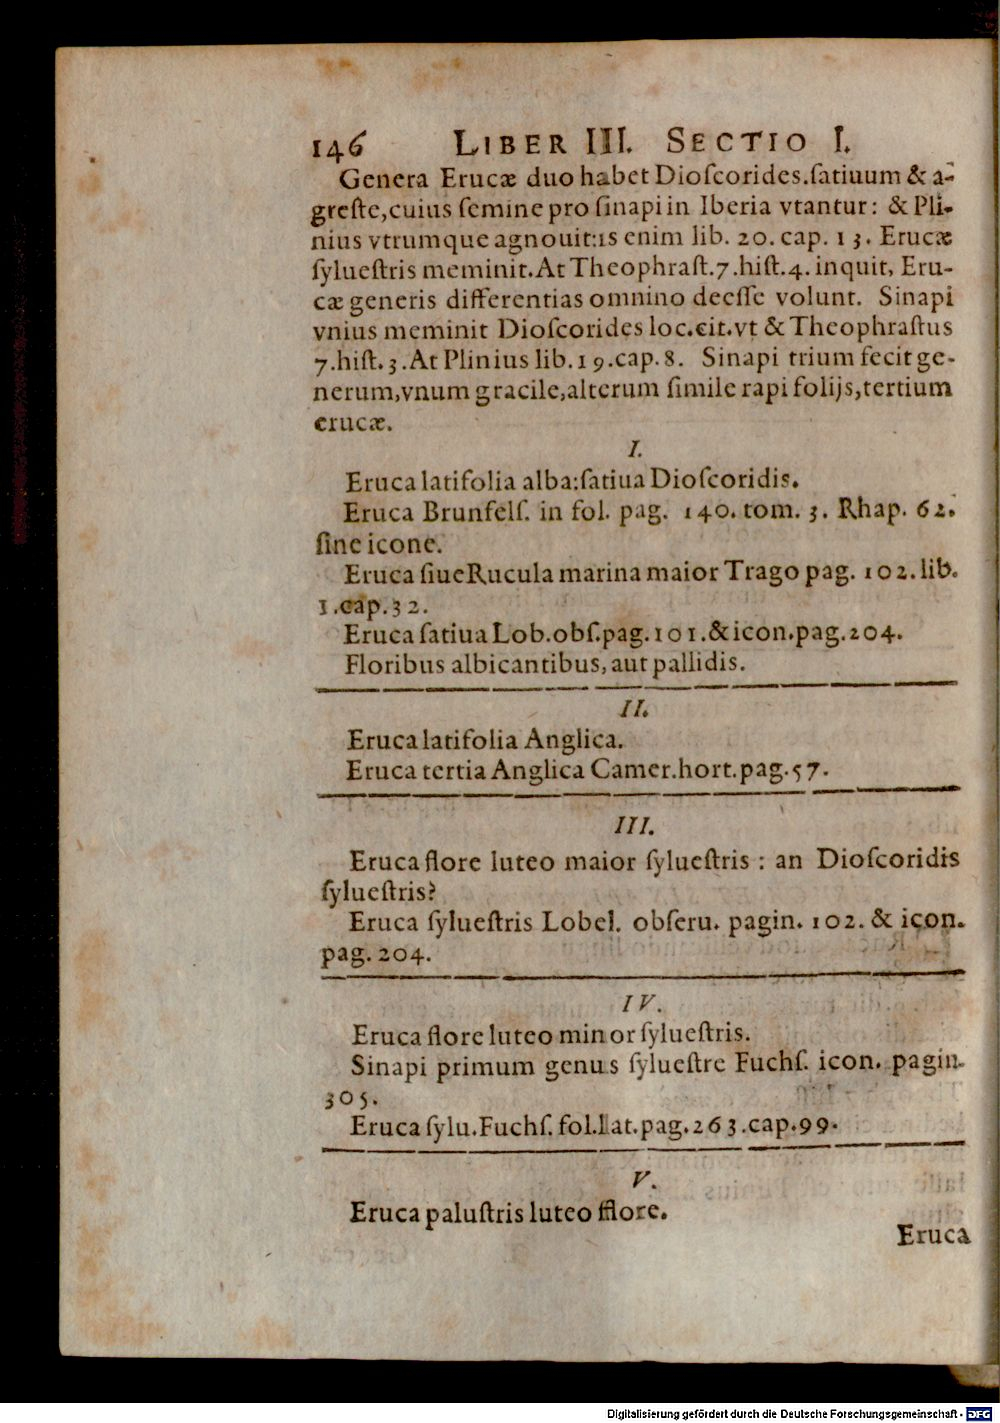 146 LIBER III. SECTIO I.
Genera Erucæ duo habet Dioſcorides.ſatiuum & a-
greſte,cuius ſemine pro ſinapi in Iberia vtantur: & Pli-
nius vtrumque agnouit:is enim lib. 20. cap. 13. Erucæ
ſylueſtris meminit.At Theophraſt.7.hiſt.4. inquit, Eru-
cæ generis differentias omnino deeſſe volunt. Sinapi
vnius meminit Dioſcorides loc.cit.vt & Theophraſtus
7.hiſt.3.At Plinius lib.19.cap.8. Sinapi trium fecit ge-
nerum,vnum gracile,alterum ſimile rapi folijs,tertium
erucæ.
I.
Eruca latifolia alba:ſatiua Dioſcoridis.
Eruca Brunfelſ. in fol. pag. 140. tom. 3. Rhap. 62.
ſine icone.
Eruca ſiue Rucula marina maior Trago pag. 102. lib.
1.cap.32.
Eruca ſatiua Lob.obſ.pag.101.& icon.pag.204.
Floribus albicantibus, aut pallidis.
II.
Eruca latifolia Anglica.
Eruca tertia Anglica Camer.hort.pag.57.
III.
Eruca flore luteo maior ſylueſtris : an Dioſcoridis
ſylueſtris?
Eruca ſylueſtris Lobel. obſeru. pagin. 102. & icon.
pag. 204.
IV.
Eruca flore luteo minor ſylueſtris.
Sinapi primum genus ſylueſtre Fuchſ. icon. pagin.
305.
Eruca ſylu.Fuchſ. fol.Lat.pag.263.cap.99.
V.
Eruca paluſtris luteo fflore.
Eruca
Digitalisierung gefördert durch die Deutsche Forschungsgemeinschaft - DFG